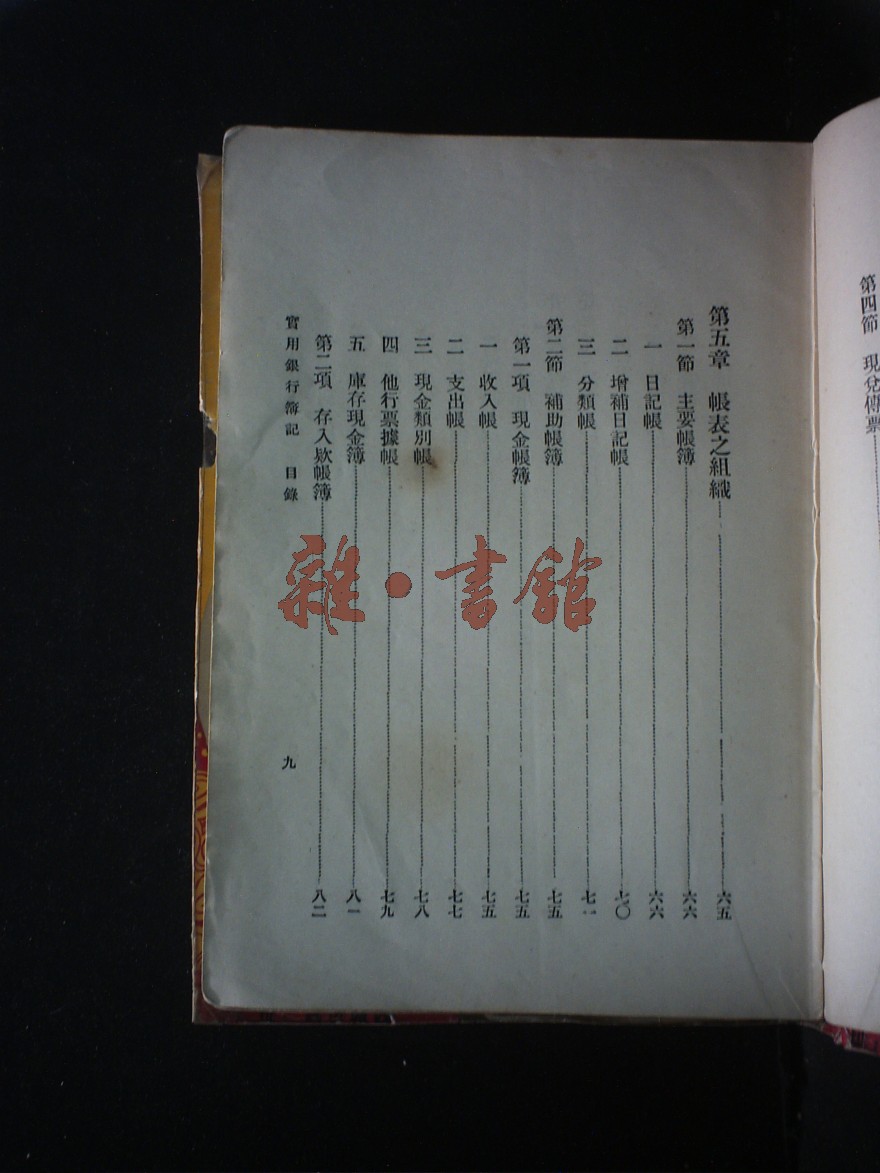 第四節　現兌傳票
第五章　帳表之組織……六五
第一節　主要帳簿……六六
一　日記帳……六六
二　增補日記帳……七〇
三　分類帳……七一
第二節　補助帳簿……七五
第一項　現金帳簿……七五
一　收入帳……七五
二　支出帳……七七
三　現金類別帳……七八
四　他行票據帳……七九
五　庫存現金簿……八一
第二項　存入欵帳簿……八二
實用銀行簿記　目錄
九
雜·書館